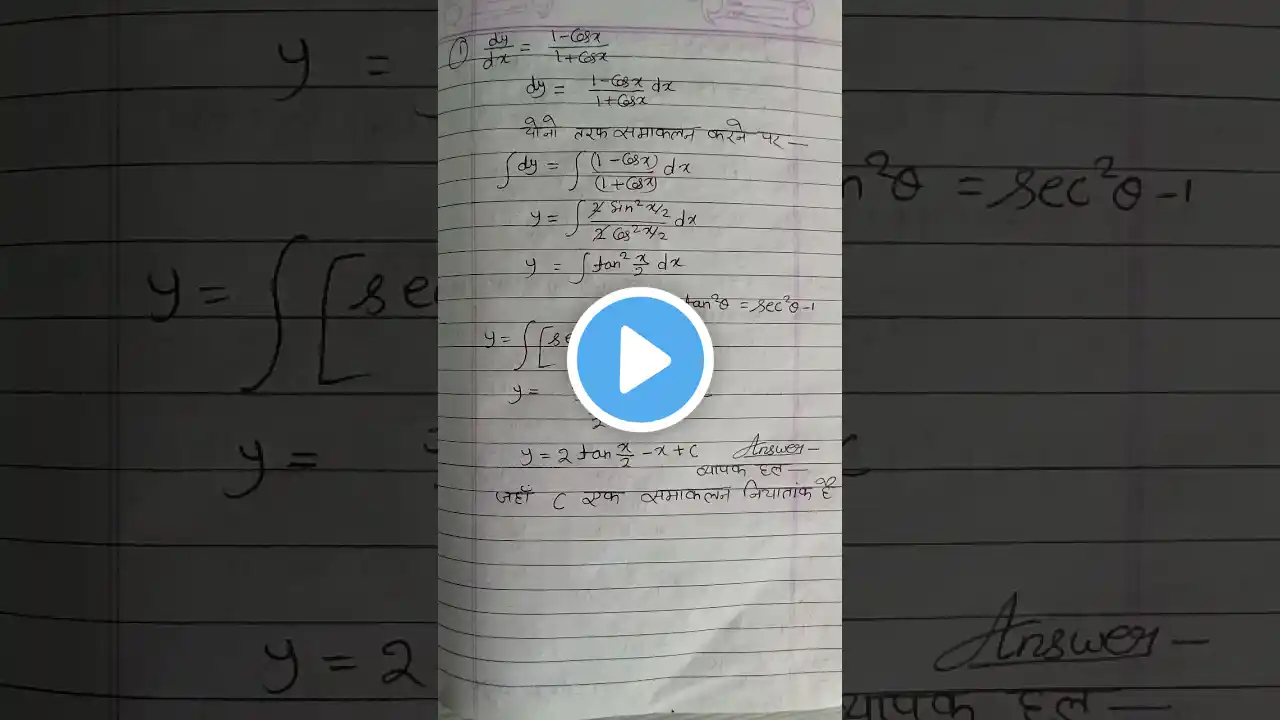 ① dy/dx = 1-Cosx/1+Cosx
dy = 1-Cosx/1+Cosx dx
दोनो तरफ समाकलन करने पर —
∫dy = ∫(1-Cosx)/(1+Cosx) dx
y = ∫ 2 Sin²x/2 / 2 Cos²x/2 dx
y = ∫tan² x/2 dx
tan²θ = sec²θ-1
y = ∫[se
y =
2
y = 2 tan x/2 - x + C Answer —
व्यापक हल —
जहाँ C एक समाकलन नियातांक है
y =
n²θ = sec²θ-1
y = ∫[sec
y =
y = 2
Answer —
व्यापक हल —